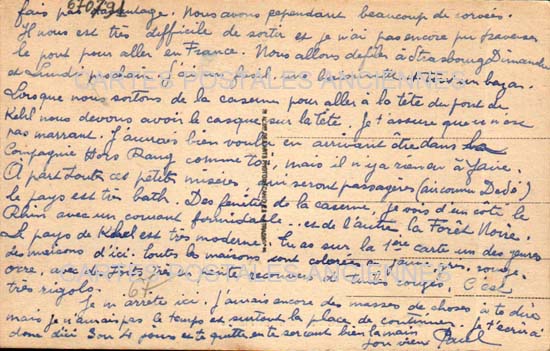 fais pas davantage. Nous avons cependant beaucoup de corvées.
Il nous est très difficile de sortir et je n'ai pas encore pu traverser
le pont pour aller en France. Nous allons défiler à Strasbourg Dimanche
et Lundi prochain. J'ai un fusil, une baïonnette et tout un bazar.
Lorsque nous sortons de la caserne pour aller à la tête du pont de
Kehl nous devons avoir le casque sur la tête. Je t'assure que ce n'est
pas marrant. J'aurais bien voulu en arrivant être dans la
Compagnie Hors Rang comme toi, mais il n'y a rien à faire.
À part toutes ces petites misères qui seront passagères (air connu Dédé)
le pays est très bath. Des fenêtres de la caserne, je vois d'un côté le
Rhin avec un courant formidable .. et de l'autre la Forêt Noire.
Le pays de Kehl est très moderne. Tu as sur la 1ère carte un des genres
des maisons d'ici. Toutes les maisons sont colorées à jaune, gris, rouge,
ocre, avec des toits très en pente recouverts de tuiles rouges. C'est
très rigolo.
Je m'arrête ici. J'aurais encore des masses de choses à te dire
mais je n'aurais pas le temps et surtout la place de continuer. Je t'écrirai
donc d'ici 3 ou 4 jours et te quitte en te serrant bien la main
Ton vieux Paul
CARTES POSTALES ANCIENNES
CARTES POSTALES ANCIENNES
67